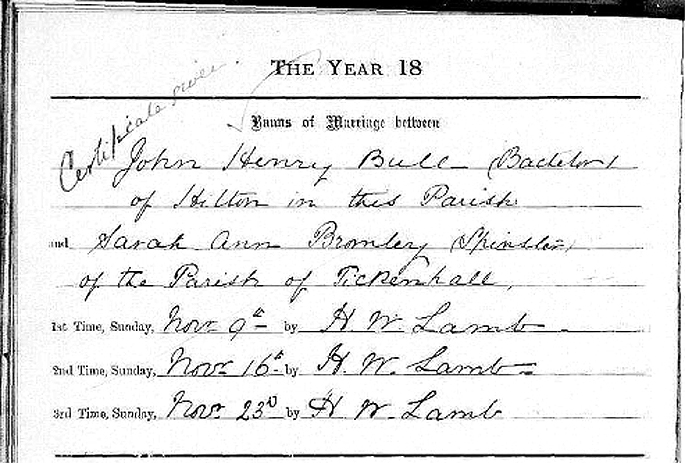 THE YEAR 18
Certificate given.
Banns of Marriage between
John Henry Bull (Bachelor)
of Hilton in this Parish
and Sarah Ann Bromley (Spinster)
of the Parish of Tickenhall,
1st Time, Sunday, Novr 9th by H. W. Lamb
2nd Time, Sunday, Novr 16th by H. W. Lamb
3rd Time, Sunday, Novr 23d by H W. Lamb